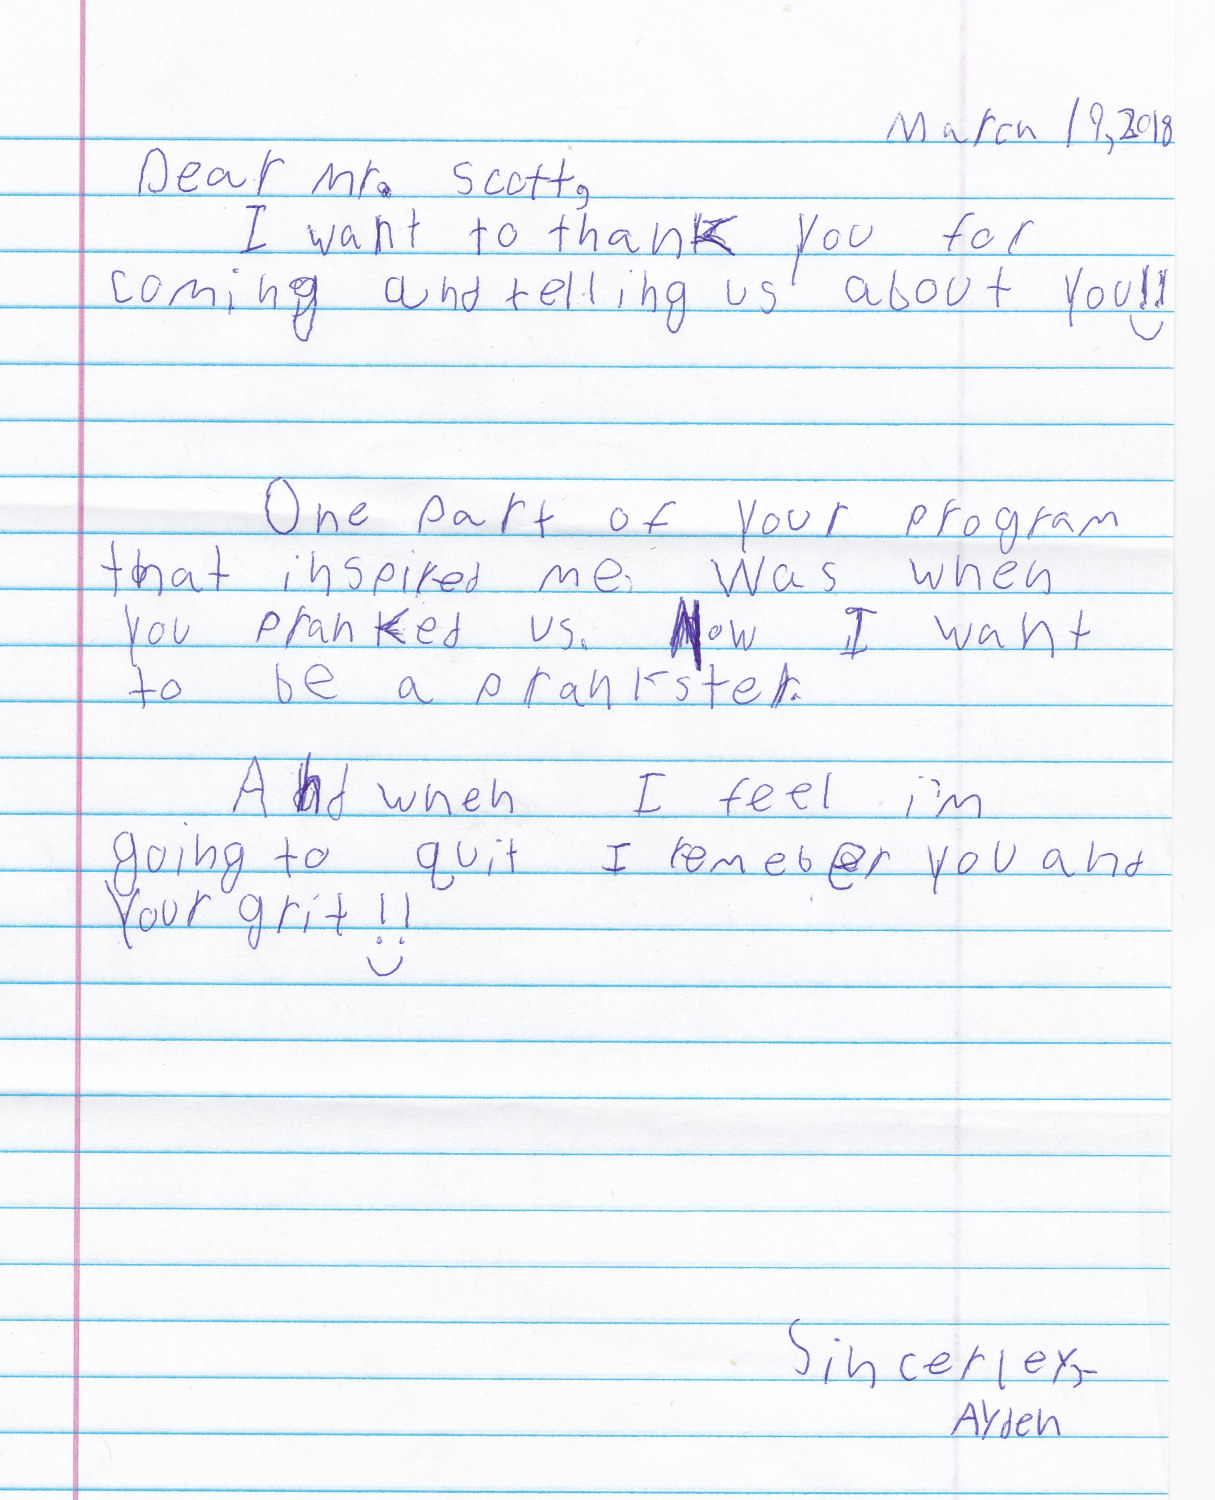 March 19, 2018
Dear Mr. Scott,
I want to thank you for
coming and telling us about you!!
One part of your program
that inspired me. Was when
you pranked us. Now I want
to be a prankster.
And when I feel i'm
going to quit I remeber you and
Your grit!!
Sincerley,
Ayden